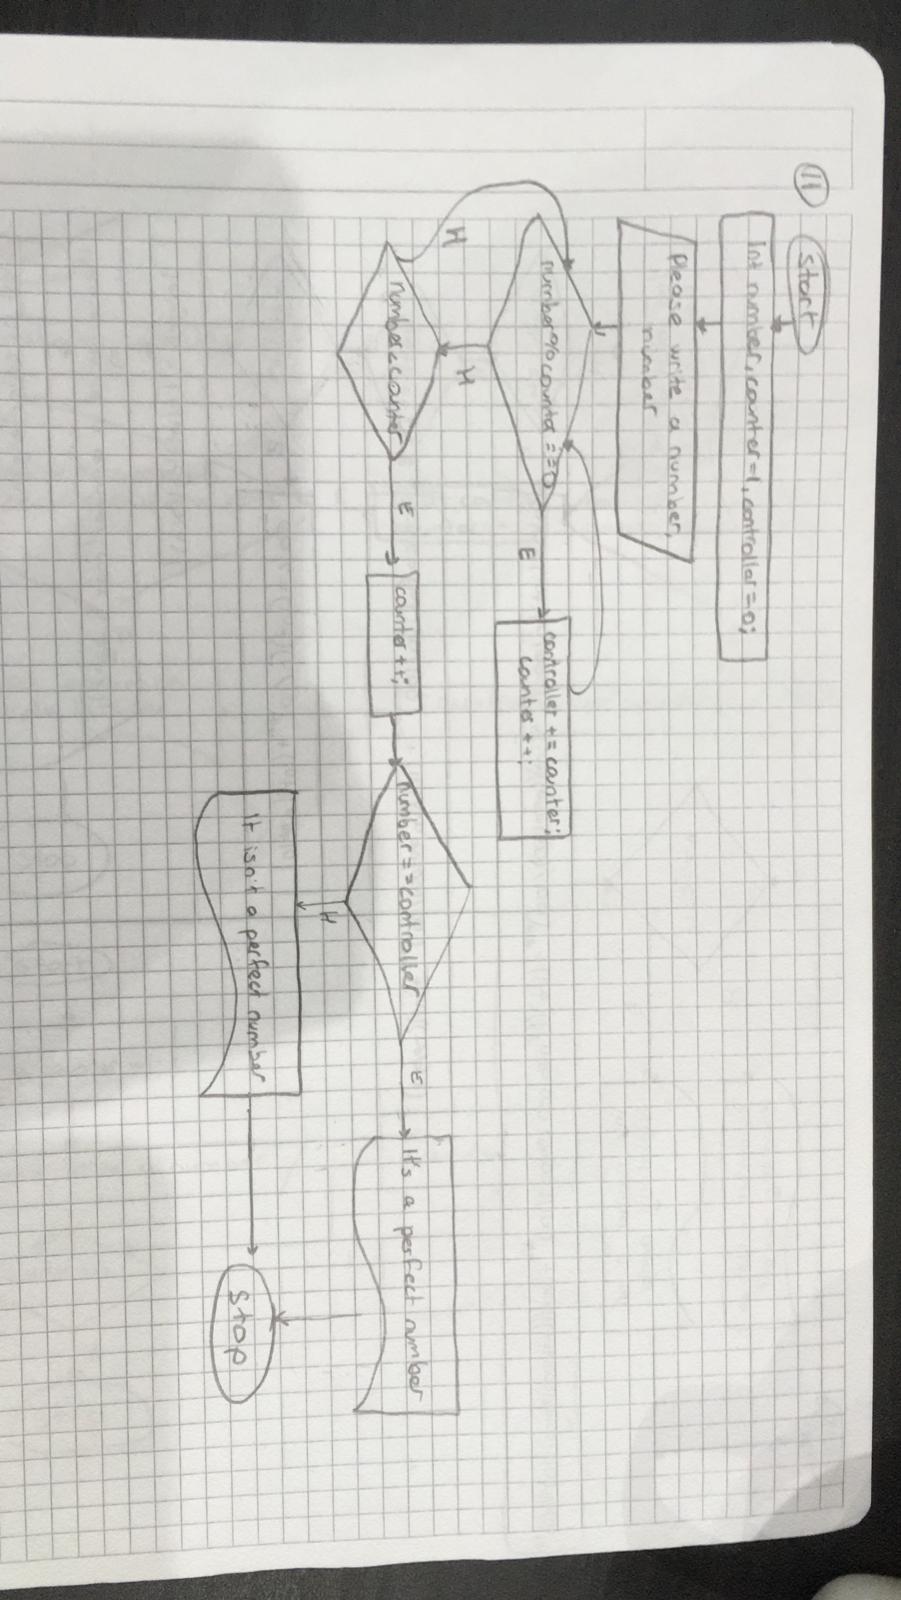 11
Start
Int number, counter=1, controller=0;
Please write a number,
number
number%counter==0
E
controller += counter;
counter ++;
H
H
number<counter
E
counter++;
number==controller
E
It's a perfect number
H
It isn't a perfect number
Stop